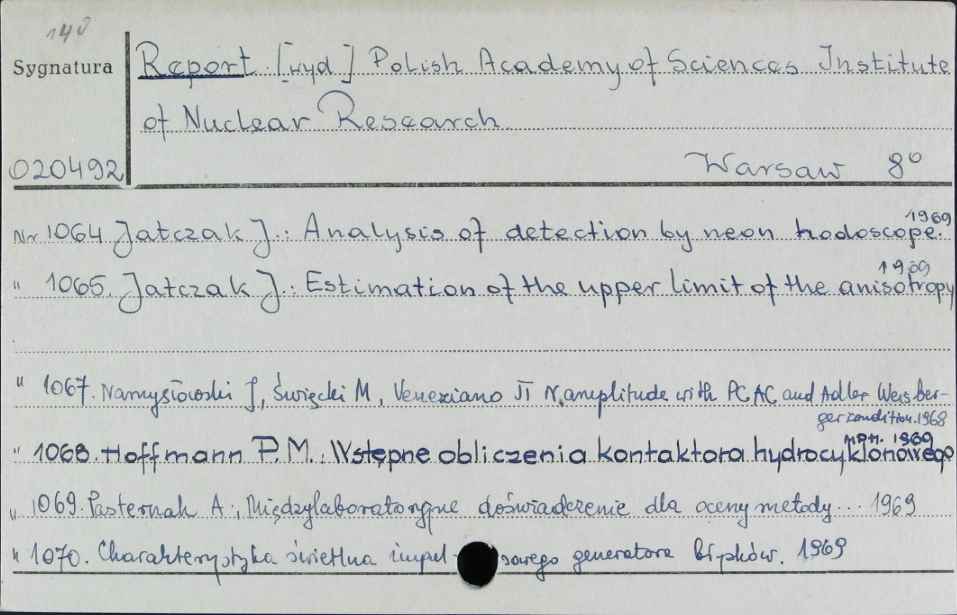 148
Sygnatura
Report [wyd] Polish Academy of Sciences Institute
of Nuclear Research
020492
Warsaw 8°
Nr 1064 Jatczak J.: Analysis of detection by neon hodoscope. 1969
" 1065. Jatczak J.: Estimation of the upper limit of the anisotropy 1969
" 1067. Namysłowski J, Święcki M, Veneziano π N amplitude with PCAC and Adler Weisber-
ger condition. 1968
" 1068. Hoffmann P.M. Wstępne obliczenia kontaktora hydrocyklonowego 1969
" 1069. Pasternak A., Międzylaboratoryjne doświadczenie dla oceny metody... 1969
" 1070. Charakterystyka świetlna impulsowego generatora błysków. 1969